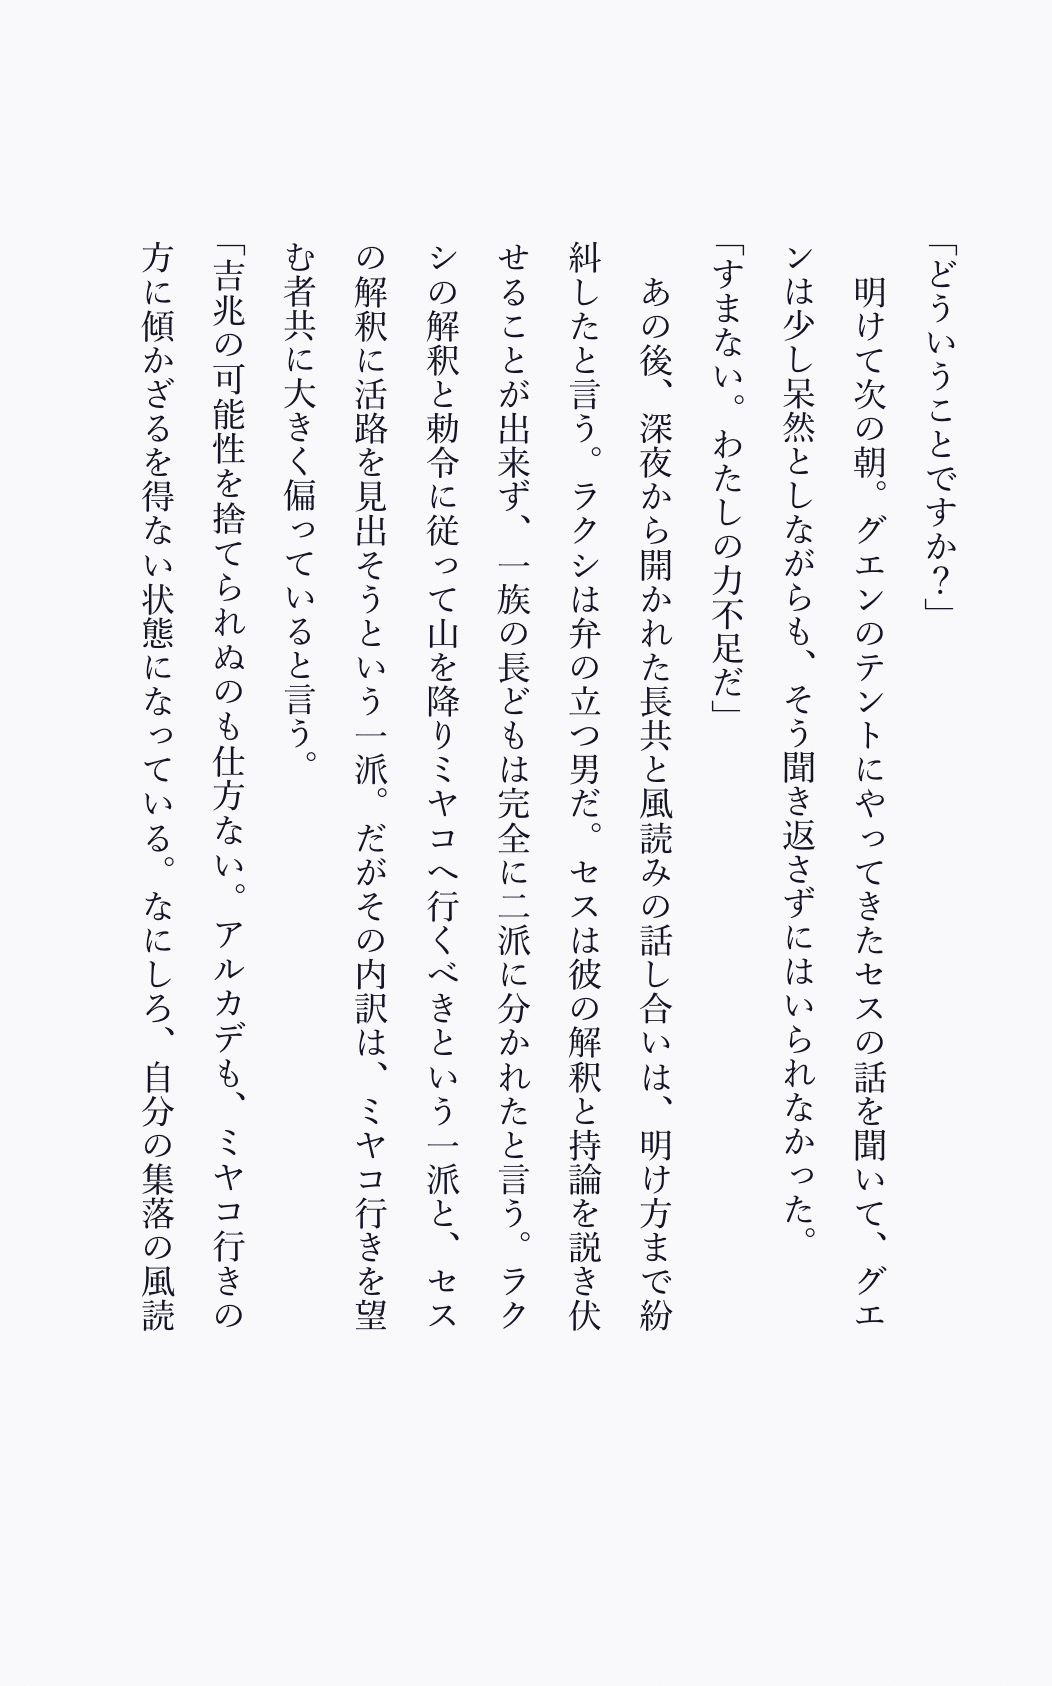 「どういうことですか？」
　明けて次の朝。グエンのテントにやってきたセスの話を聞いて、グエ
ンは少し呆然としながらも、そう聞き返さずにはいられなかった。
「すまない。わたしの力不足だ」
　あの後、深夜から開かれた長共と風読みの話し合いは、明け方まで紛
糾したと言う。ラクシは弁の立つ男だ。セスは彼の解釈と持論を説き伏
せることが出来ず、一族の長どもは完全に二派に分かれたと言う。ラク
シの解釈と勅令に従って山を降りミヤコへ行くべきという一派と、セス
の解釈に活路を見出そうという一派。だがその内訳は、ミヤコ行きを望
む者共に大きく偏っていると言う。
「吉兆の可能性を捨てられぬのも仕方ない。アルカデも、ミヤコ行きの
方に傾かざるを得ない状態になっている。なにしろ、自分の集落の風読